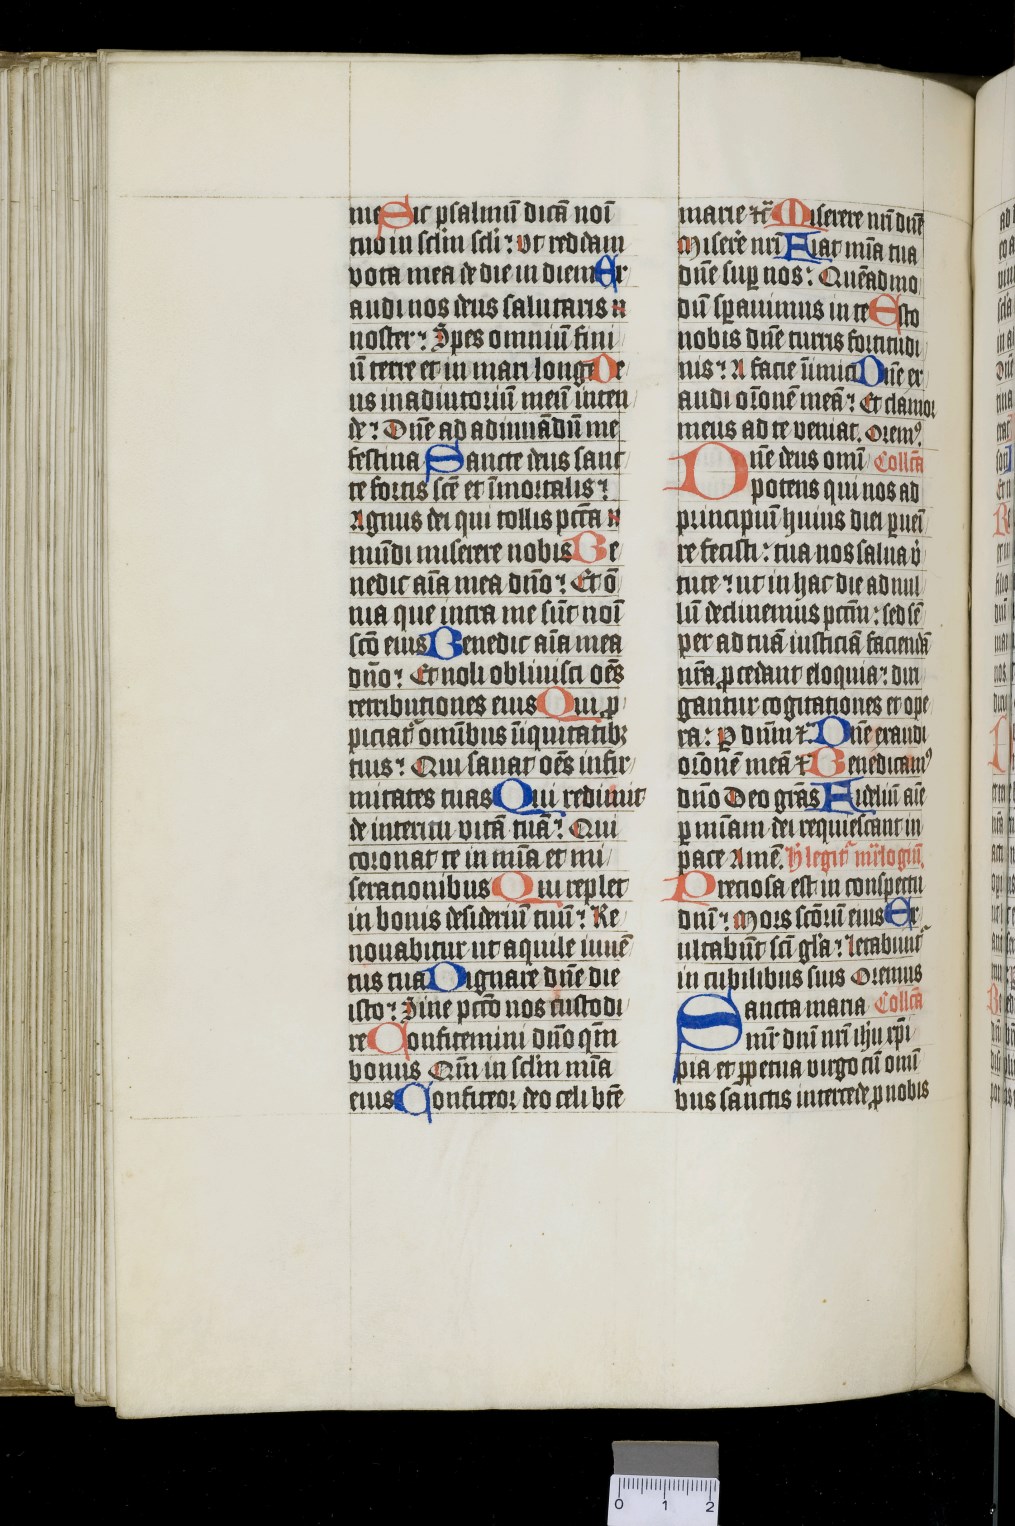 me Sic psalmū dicā noī
tuo in sclm scli : vt reddam
vota mea de die in diem Ex
audi nos deus salutaris n
noster : Spes omniū fini
ū terre et in mari longe De
us in adiutoriū meū inten
de : Dn̄e ad adiuuādū me
festina Sancte deus sanc
te fortis scē et īmortalis :
Agnus dei qui tollis pctā n
mūdi miserere nobis Be
nedic aīa mea dn̄o : Et ō
nia que intra me sūt noī
scō eius Benedic aīa mea
dn̄o : Et noli obliuisci oēs
retributiones eius Qui ꝓ
piciat᷑ omībus īiquitatibꝫ
tuis : Qui sanat oēs infir
mitates tuas Qui redimit
de interitu vitā tuā : Qui
coronat te in mīa et mi
serationibus Qui replet
in bonis desideriū tuū : Re
nouabitur ut aquile iuuē
tus tua Dignare dn̄e die
isto : Sine pctō nos custodi
re Confitemini dn̄o qm̄
bonus Qm̄ in sclm mīa
eius Confiteor deo celi btē
marie ⁊c̄ Miserere nrī dn̄e
Miserē nrī Fiat mīa tua
dn̄e suꝑ nos : Quēadmo
dū sꝑauimus in te Esto
nobis dn̄e turris fortitudi
nis : A facie īimici Dn̄e ex
audi orōnē meā : Et clamor
meus ad te veniat. Oremꝰ.
Dn̄e deus omī Collcā
potens qui nos ad
principiū huius diei ꝑueī
re fecisti : tua nos salua v̄
tute : ut in hac die ad nul
lū declinemus pctm̄ : sed sē
per ad tuā iusticiā faciendā
nrā ꝓcedant eloquia : diri
gantur cogitationes et ope
ra : Ꝑ dnm̄ ⁊ Dn̄e exaudi
orōnē meā ⁊ Benedicamꝰ
dn̄o Deo grās Fideliū aīe
ꝑ mīam dei requiescant in
pace Amē. H̄ legit᷑ mr̄logiū.
Preciosa est in conspectu
dnī : Mors scōrū eius Ex
ultabūt scī glīa : letabunt᷑
in cubilibus suis Oremus
Sancta maria Collcā
mr̄ dnī nrī ihū xp̄i
pia et ꝑpetua virgo cū omī
bus sanctis intercede ꝓ nobis